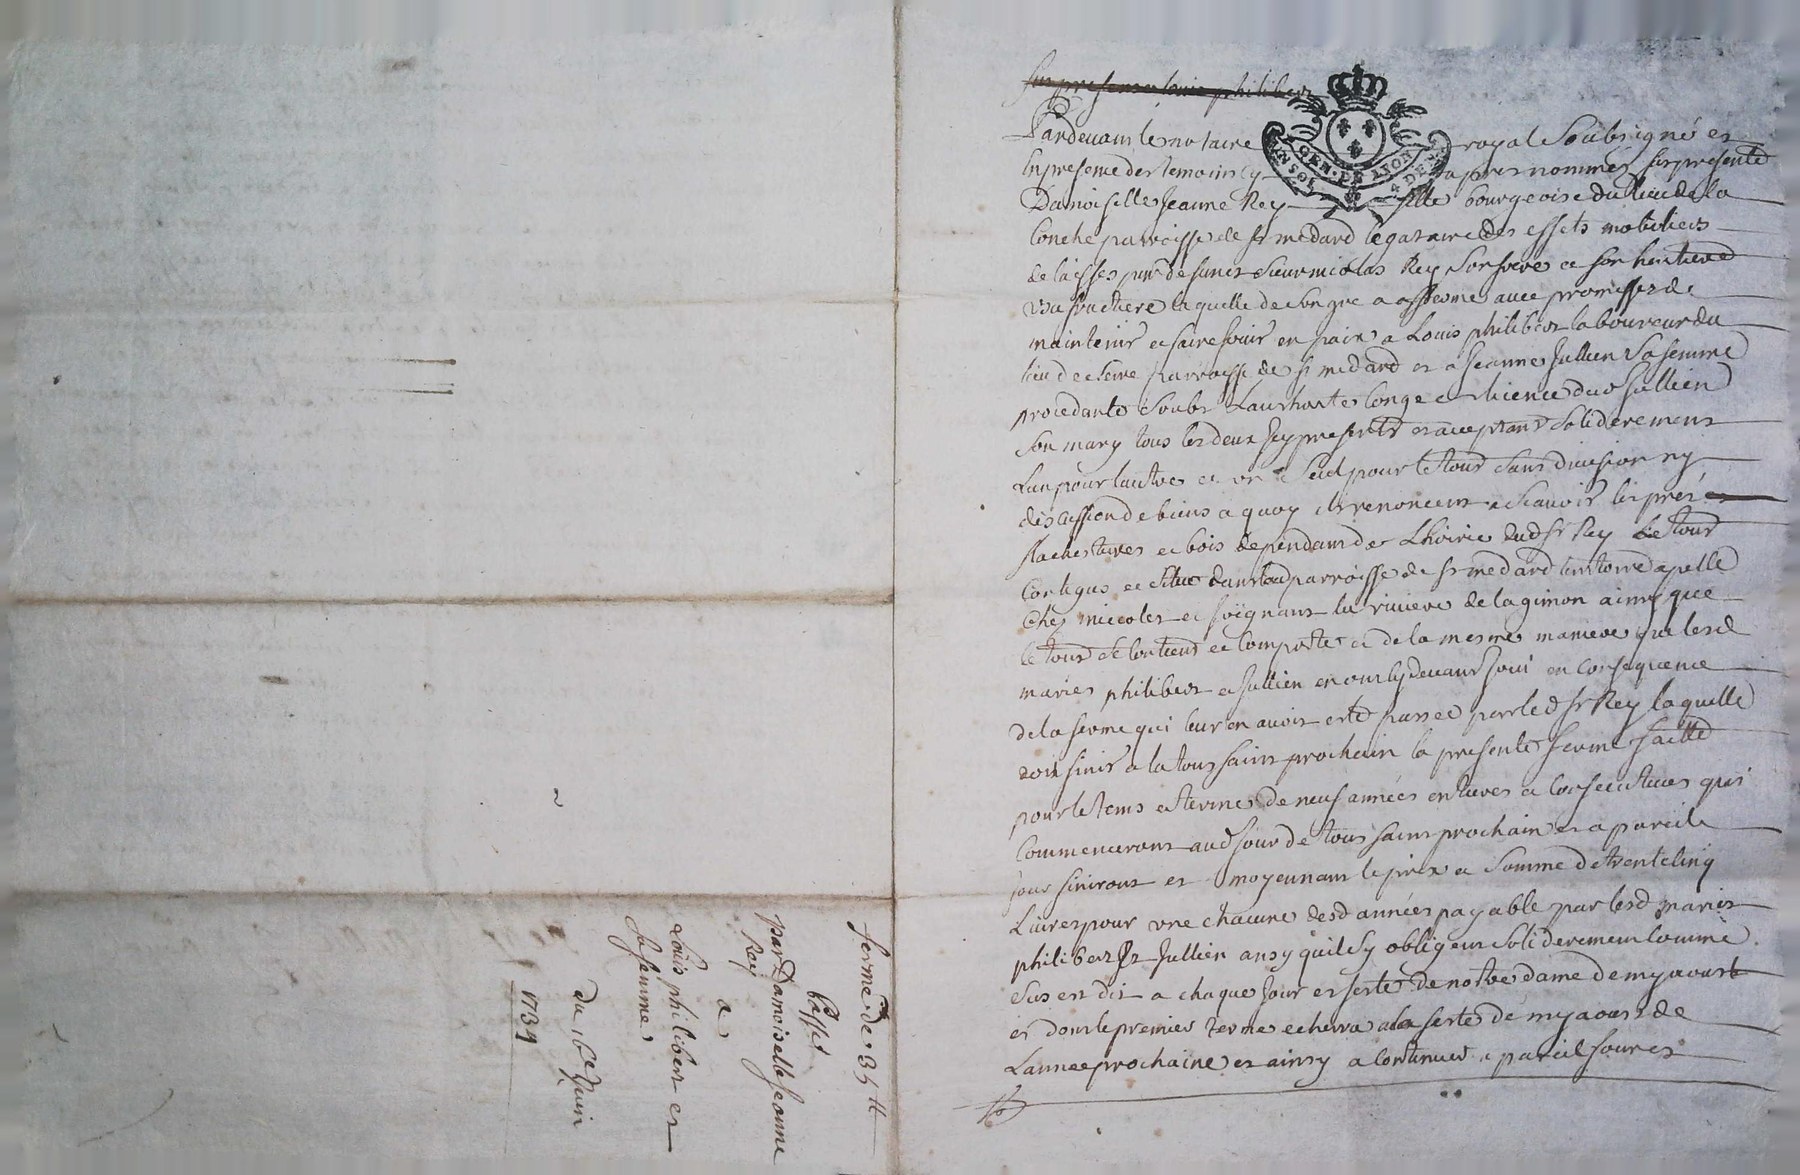 Pardevant le notaire royal Soubsigné et
en presence des temoins cy apres nommés fut presente
Damoiselle Jeanne Rey fille bourgeoise du lieu de la
Conche parroisse de st medard legataire des effets mobiliers
delaisses par defunct Sieur nicolas Rey son frere et son heritiere
usufructiere laquelle de son gre a affermé avec promesse de
maintenir et faire jouir en paix a Louis philibert laboureur du
lieu de parroisse de st medard et a Jeanne Jullien Sa femme
procedante Soubs Lauthorite Conge et licence dud
Son mary tous les deux icy presents et acceptant Soliderement
Lun pour lautre et un Seul pour le tout Sans division ny
discussion de biens a quoy ils renoncent a Scavoir les prés
terres et bois dependant de Lhoirie dud sr Rey Le tout
Contegus et Situe dans lad parroisse de st medard territoire apellé
Chez et joignant la riviere de lagimon ainsy que
le tout Se Contient et Comporte et de la mesme maniere que lesd
mariés philibert et Jullien en ont cy devant joui en Consequence
de la ferme qui leur en avoit esté passée par led sr Rey laquelle
doit finir a la toussaint prochain la presente ferme faitte
pour le tems et terme de neuf années entieres et Consecutives qui
Commenceront aud jour de toussaint prochain et a pareil
jour finiront et moyennant le prix et Somme de trente cinq
Livres pour une chacune desd années payable par lesd mariés
philibert et Jullien ainsy quil Sy obligent Soliderement Comme
Sus est dit a chaque jour et feste de notre dame de my aoust
et dont le premier terme echerra a la feste de my aoust de
Lannee prochaine et ainsy a Continuer a pareil jour et
ferme de 35 tt
par Damoiselle Jeanne
Rey
a
Louis philibert et
Sa femme
Du 16e Juin
1739